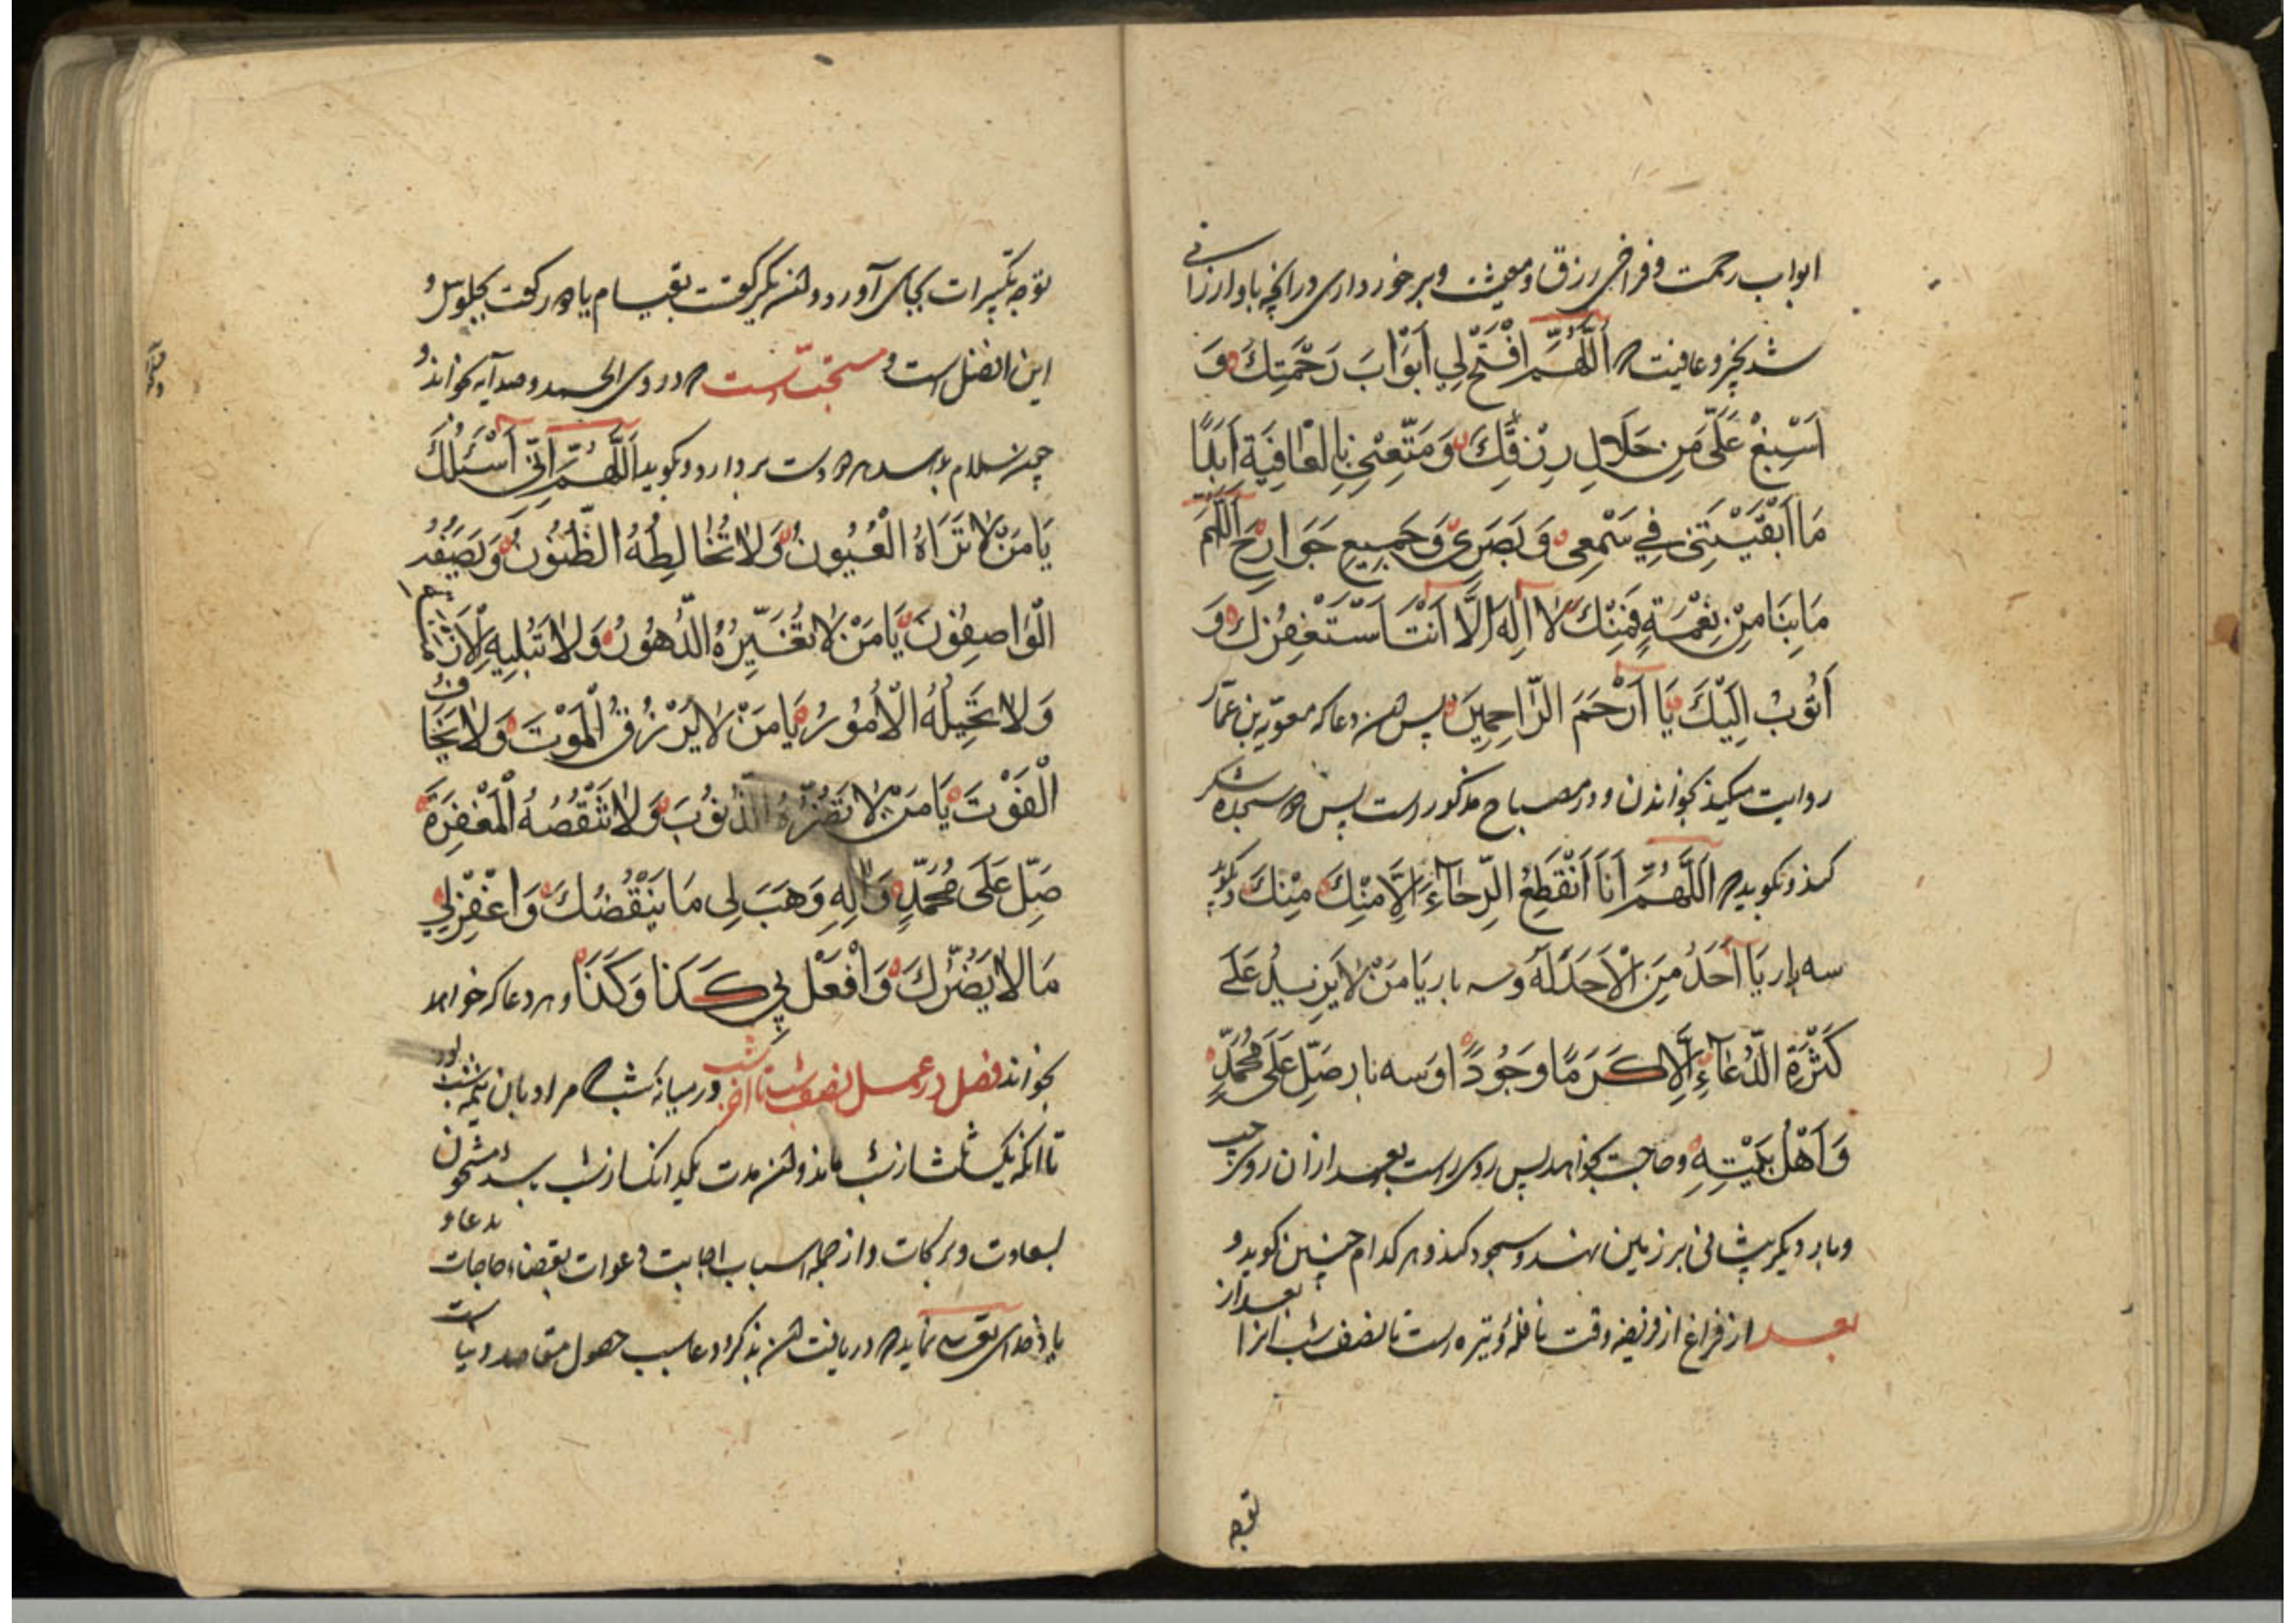 ابواب رحمت و فراخی رزق و معیشت و برخورداری در آنچه باو ارزانی
شد بخیر و عافیت اَللّٰهُمَّ افْتَحْ لِي اَبْوَابَ رَحْمَتِكَ وَ
اَسْبِغْ عَلَيَّ مِن حَلَالِ رِزْقِكَ وَمَتِّعْنِي بِالْعَافِيَةِ اَبَدًا
مَا اَبْقَيْتَنِي فِي سَمْعِي وَ بَصَرِي وَ جَمِيعِ جَوَارِحِي اَللّٰهُمَّ
مَا بِنَا مِنْ نِعْمَةٍ فَمِنْكَ لَا اِلٰهَ اِلَّا اَنْتَ اَسْتَغْفِرُكَ وَ
اَتُوبُ اِلَيْكَ يَا اَرْحَمَ الرَّاحِمِينَ پس دعا که معویه بن عمّار
روایت میکند بخواندن و در مصباح مذکور است پس سجده شکر
کند و بگوید اَللّٰهُمَّ اَنَا اَنْقَطَعَ الرَّجَاءُ اِلَّا مِنْكَ مِنْكَ
سه بار يَا اَحَدُ مِنَ الْاَحَدَ لَهُ و سه بار يَا مَنْ لَا يَزِيدُ عَلَى
كَثْرَةِ الدُّعَآءِ اِلَّا كَرَمًا وَ جُودًا و سه بار صَلِّ عَلَى مُحَمَّدٍ
وَ اَهْلِ بَيْتِهِ و حاجت بخواهد پس روی راست بعد از آن روی چپ
و بار دیگر پیشانی بر زمین نهد و سجود کند و هر کدام چنین گوید و
بعد از فراغ از فریضه وقت نافله وتیره است تا نصف شب بعد از
توجه
توجه تکبیرات بجای آورد و یکرکعت بقیام یا دو رکعت بجلوس و
این افضل است و مستحبّ است در وی الحمد و صد آیه خواند و
چون سلام بدهد دست بردارد و بگوید اَللّٰهُمَّ اِنِّي اَسْئَلُكَ
يَا مَنْ لَا تَرَاهُ الْعُيُونُ وَ لَا تُخَالِطُهُ الظُّنُونُ وَ يَصِفُهُ
الْوَاصِفُونَ يَا مَنْ لَا تُغَيِّرُهُ الدُّهُورُ وَ لَا تُبْلِيهِ الْاَزْمَانُ
وَ لَا تُحِيلُهُ الْاُمُورُ يَا مَنْ لَا يَرْزُقُ الْمَوْتَ وَ لَا يَخَافُ
الْفَوْتَ يَا مَنْ لَا تَضُرُّهُ الذُّنُوبَ وَ لَا تَنْقُصُهُ الْمَغْفِرَةَ
صَلِّ عَلَى مُحَمَّدٍ وَ اٰلِهِ وَ هَبَ لِی مَا يَنْقُصُكَ وَ اغْفِرْ لِي
مَا لَا يَضُرُّكَ وَ افْعَلْ بِي كَذَا وَ كَذَا و هر دعا که خواهد
بخواند فصل در عمل نصف شب تا آخر شب در میانه شب مراد باین نیمه شب
تا آنکه یک ثلث از شب ماند و مدت یکدانک از شب باشد مشحون
بسعادت و برکات و از جمله اسباب اجابت دعوات بقضاء حاجات
دریافت بذکر و دعا سبب حصول مقاصد دنیا